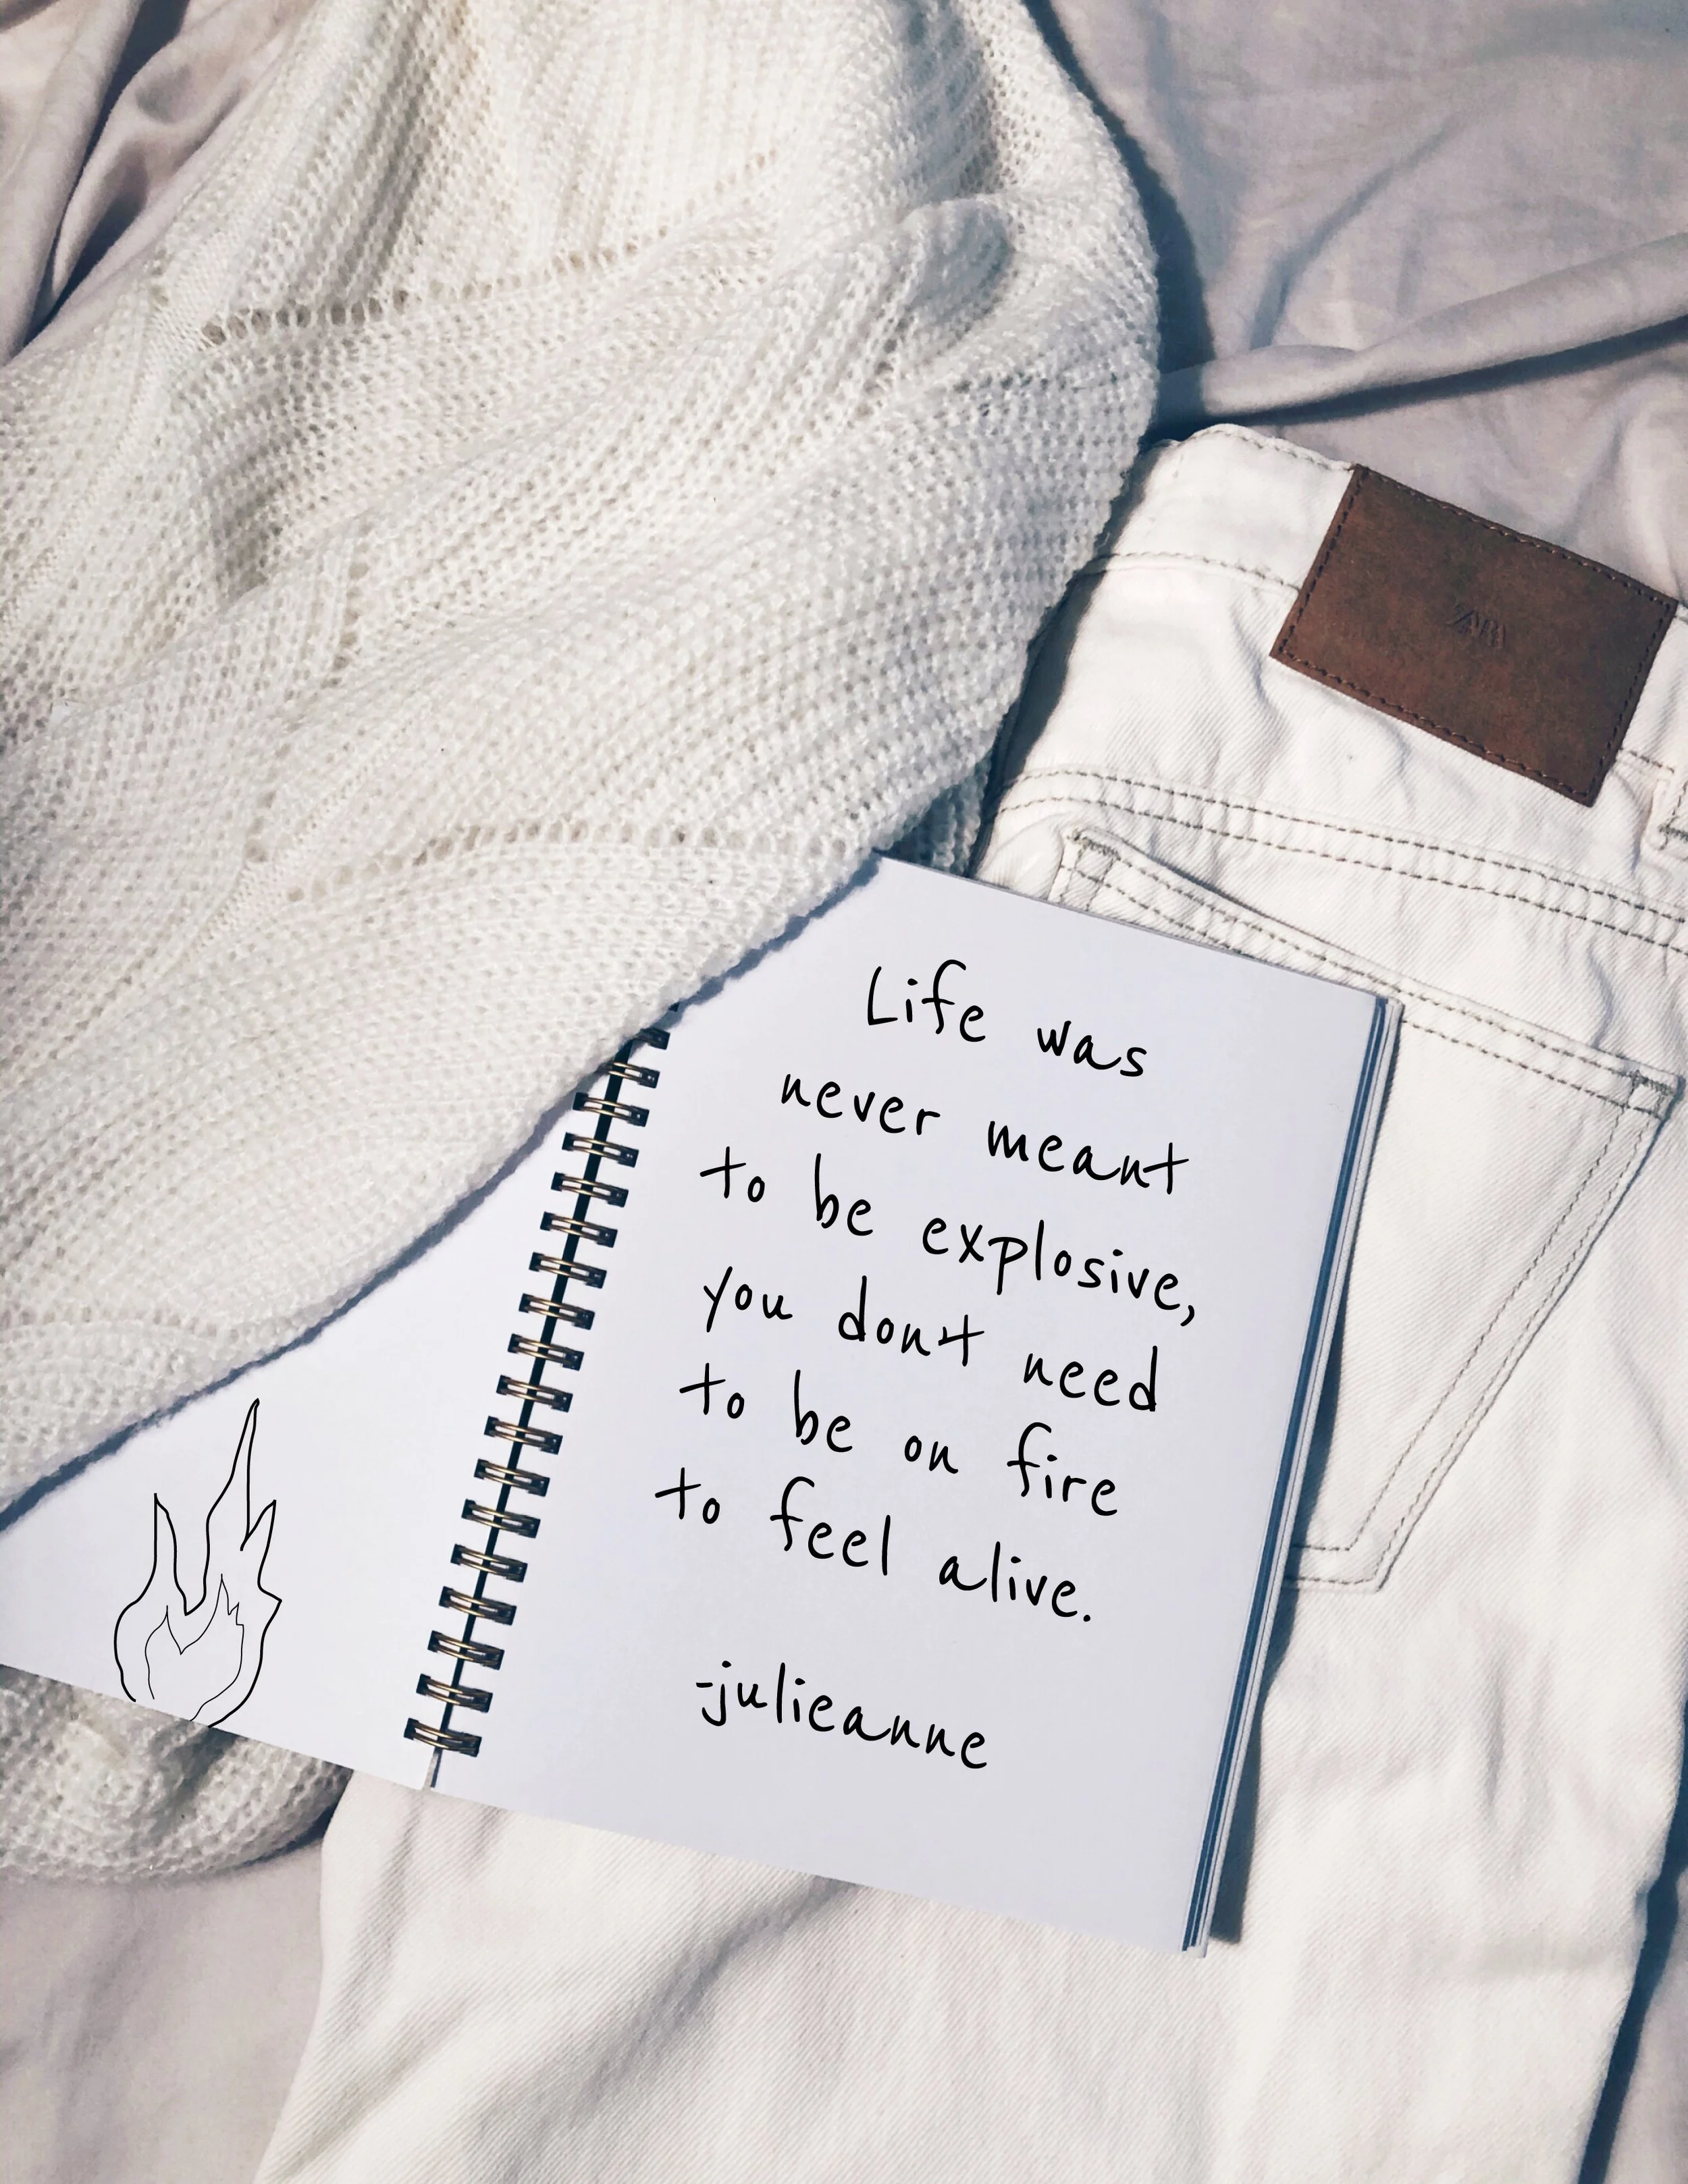 ZARA
Life was
never meant
to be explosive,
you dont need
to be on fire
to feel alive.
-julieanne